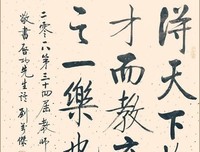 得天下
才而教
之一樂也
二零一八第三十四屆教師
敬書啓功先生詩劉